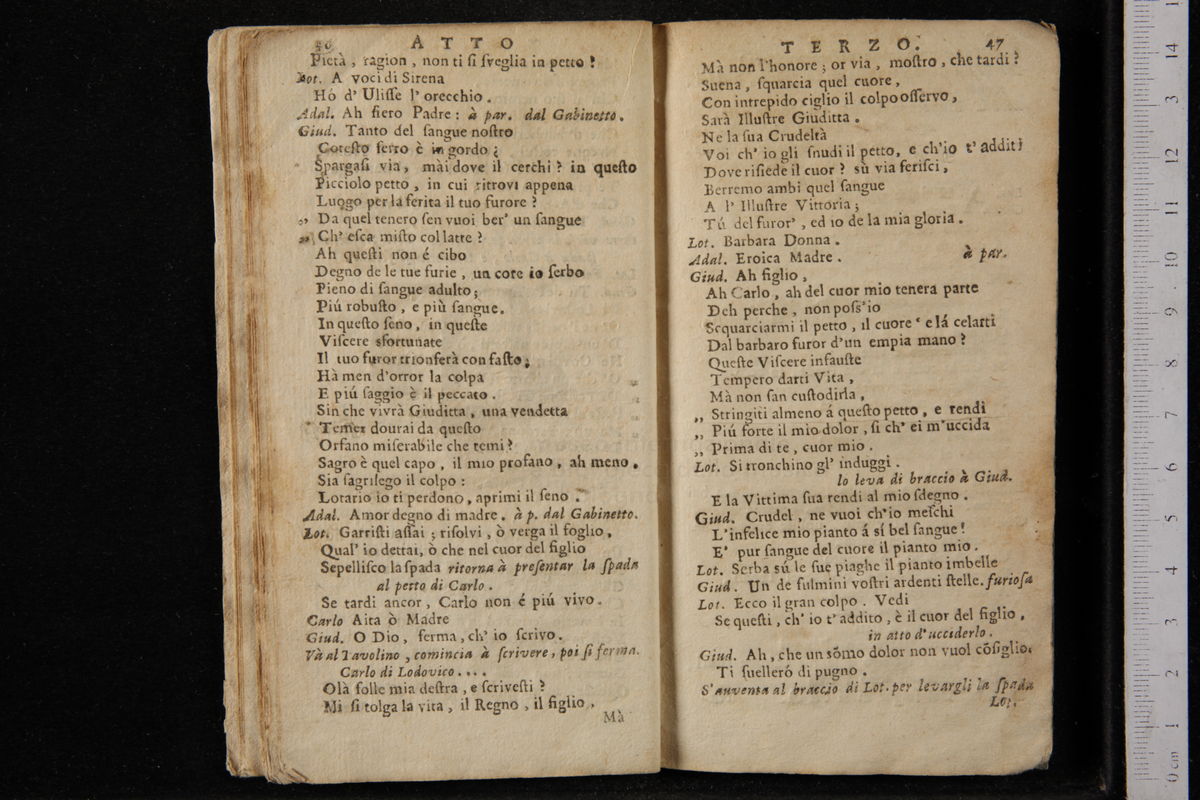 46 ATTO
Pietà, ragion, non ti si sveglia in petto!
Lot. A voci di Sirena
Hó d' Ulisse l' orecchio.
Adal. Ah fiero Padre: à par. dal Gabinetto.
Giud. Tanto del sangue nostro
Cotesto ferro è in gordo ;
Spargasi via, mài dove il cerchi? in questo
Picciolo petto, in cui ritrovi appena
Luogo per la ferita il tuo furore?
,, Da quel tenero sen vuoi ber' un sangue
,, Ch' esca misto col latte?
Ah questi non é cibo
Degno de le tue furie, un core io serbo
Pieno di sangue adulto;
Piú robusto, e più sangue.
In questo seno, in queste
Viscere sfortunate
Il tuo furor trionferà con fasto;
Hà men d'orror la colpa
E piú saggio è il peccato.
Sin che vivrà Giuditta, una vendetta
Temer dourai da questo
Orfano miserabile che temi?
Sagro è quel capo, il mio profano, ah meno.
Sia sagrilego il colpo:
Lotario io ti perdono, aprimi il seno.
Adal. Amor degno di madre. à p. dal Gabinetto.
Lot. Garristi assai; risolvi, ò verga il foglio,
Qual' io dettai, ò che nel cuor del figlio
Sepellisco la spada ritorna à presentar la spada
al petto di Carlo.
Se tardi ancor, Carlo non é piú vivo.
Carlo Aita ò Madre
Giud. O Dio, ferma, ch' io scrivo.
Và al Tavolino, comincia à scrivere, poi si ferma.
Carlo di Lodovico....
Olà folle mia destra, e scrivesti?
Mi si tolga la vita, il Regno, il figlio,
Mà
TERZO. 47
Mà non l'honore; or via, mostro, che tardi?
Suena, squarcia quel cuore,
Con intrepido ciglio il colpo osservo,
Sarà Illustre Giuditta.
Ne la sua Crudeltà
Voi ch' io gli snudi il petto, e ch'io t' additi
Dove risiede il cuor? sù via ferisci,
Berremo ambi quel sangue
A l' Illustre Vittoria;
Tú del furor', ed io de la mia gloria.
Lot. Barbara Donna.
Adal. Eroica Madre. à par.
Giud. Ah figlio,
Ah Carlo, ah del cuor mio tenera parte
Deh perche, non poss'io
Scquarciarmi il petto, il cuore ‘ e lá celarti
Dal barbaro furor d'un empia mano?
Queste Viscere infauste
Tempero darti Vita,
Mà non san custodirla,
,, Stringiti almeno á questo petto, e rendi
,, Piú forte il mio dolor, si ch' ei m'uccida
,, Prima di te, cuor mio.
Lot. Si tronchino gl' induggi.
lo leva di braccio à Giud.
E la Vittima sua rendi al mio sdegno.
Giud. Crudel, ne vuoi ch'io meschi
L'infelice mio pianto á sí bel sangue!
E' pur sangue del cuore il pianto mio.
Lot. Serba sú le sue piaghe il pianto imbelle
Giud. Un de fulmini vostri ardenti stelle. furiosa
Lot. Ecco il gran colpo. Vedi
Se questi, ch' io t' addito, è il cuor del figlio,
in atto d'ucciderlo.
Giud. Ah, che un sõmo dolor non vuol cõsiglio.
Ti suelleró di pugno.
S'auventa al braccio di Lot. per levargli la spada
Lot.